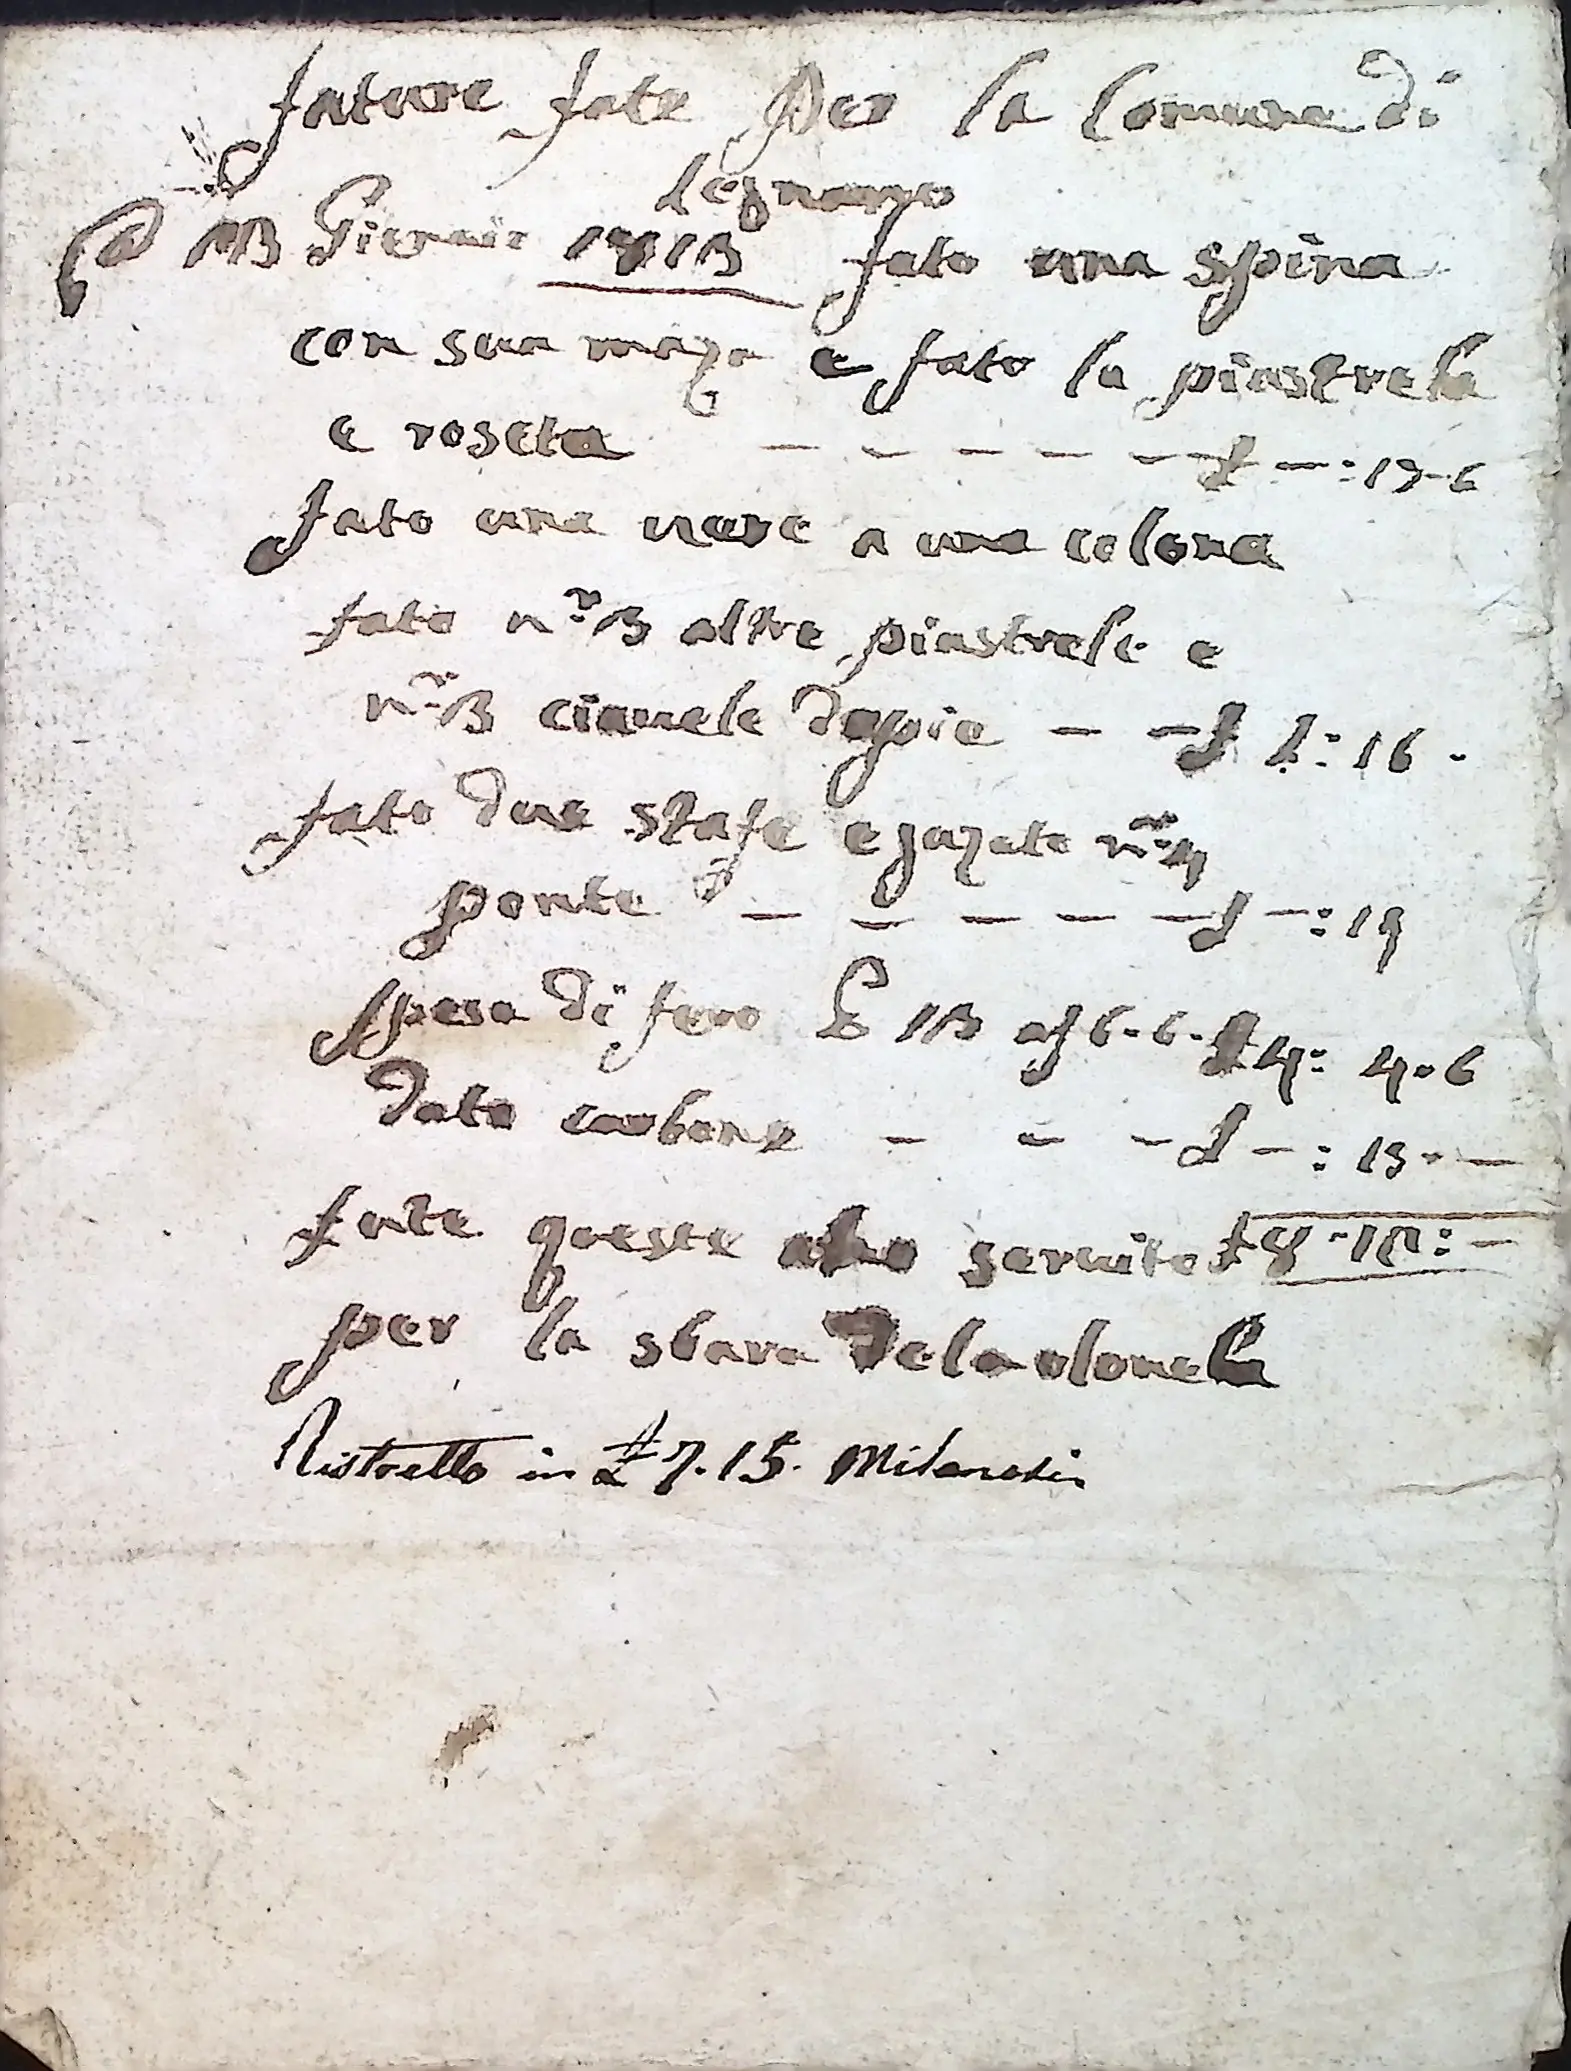 fature fate per la Comune di
Legnano
a 13 Gienaio 1813 fato una spina
con sua maza e fato la piastrela
e roseta — — — — — £ — : 19 - 6
fato una vere a una colona
fato n.º 3 altre piastrele e
n.º 3 ciauele dapie — — £ 1 : 16 -
fato due stafe e juzato n.º 4
ponte — — — — — £ — : 19
speso di fero £ 13 a £ 6 - 6 - £ 4 : 4 - 6
Dato carbone — — — £ — : 15 - —
fate queste servite £ 8 - 10 : —
per la sbara Dela olonela
Ristretto in £ 7. 15. Milanesi.